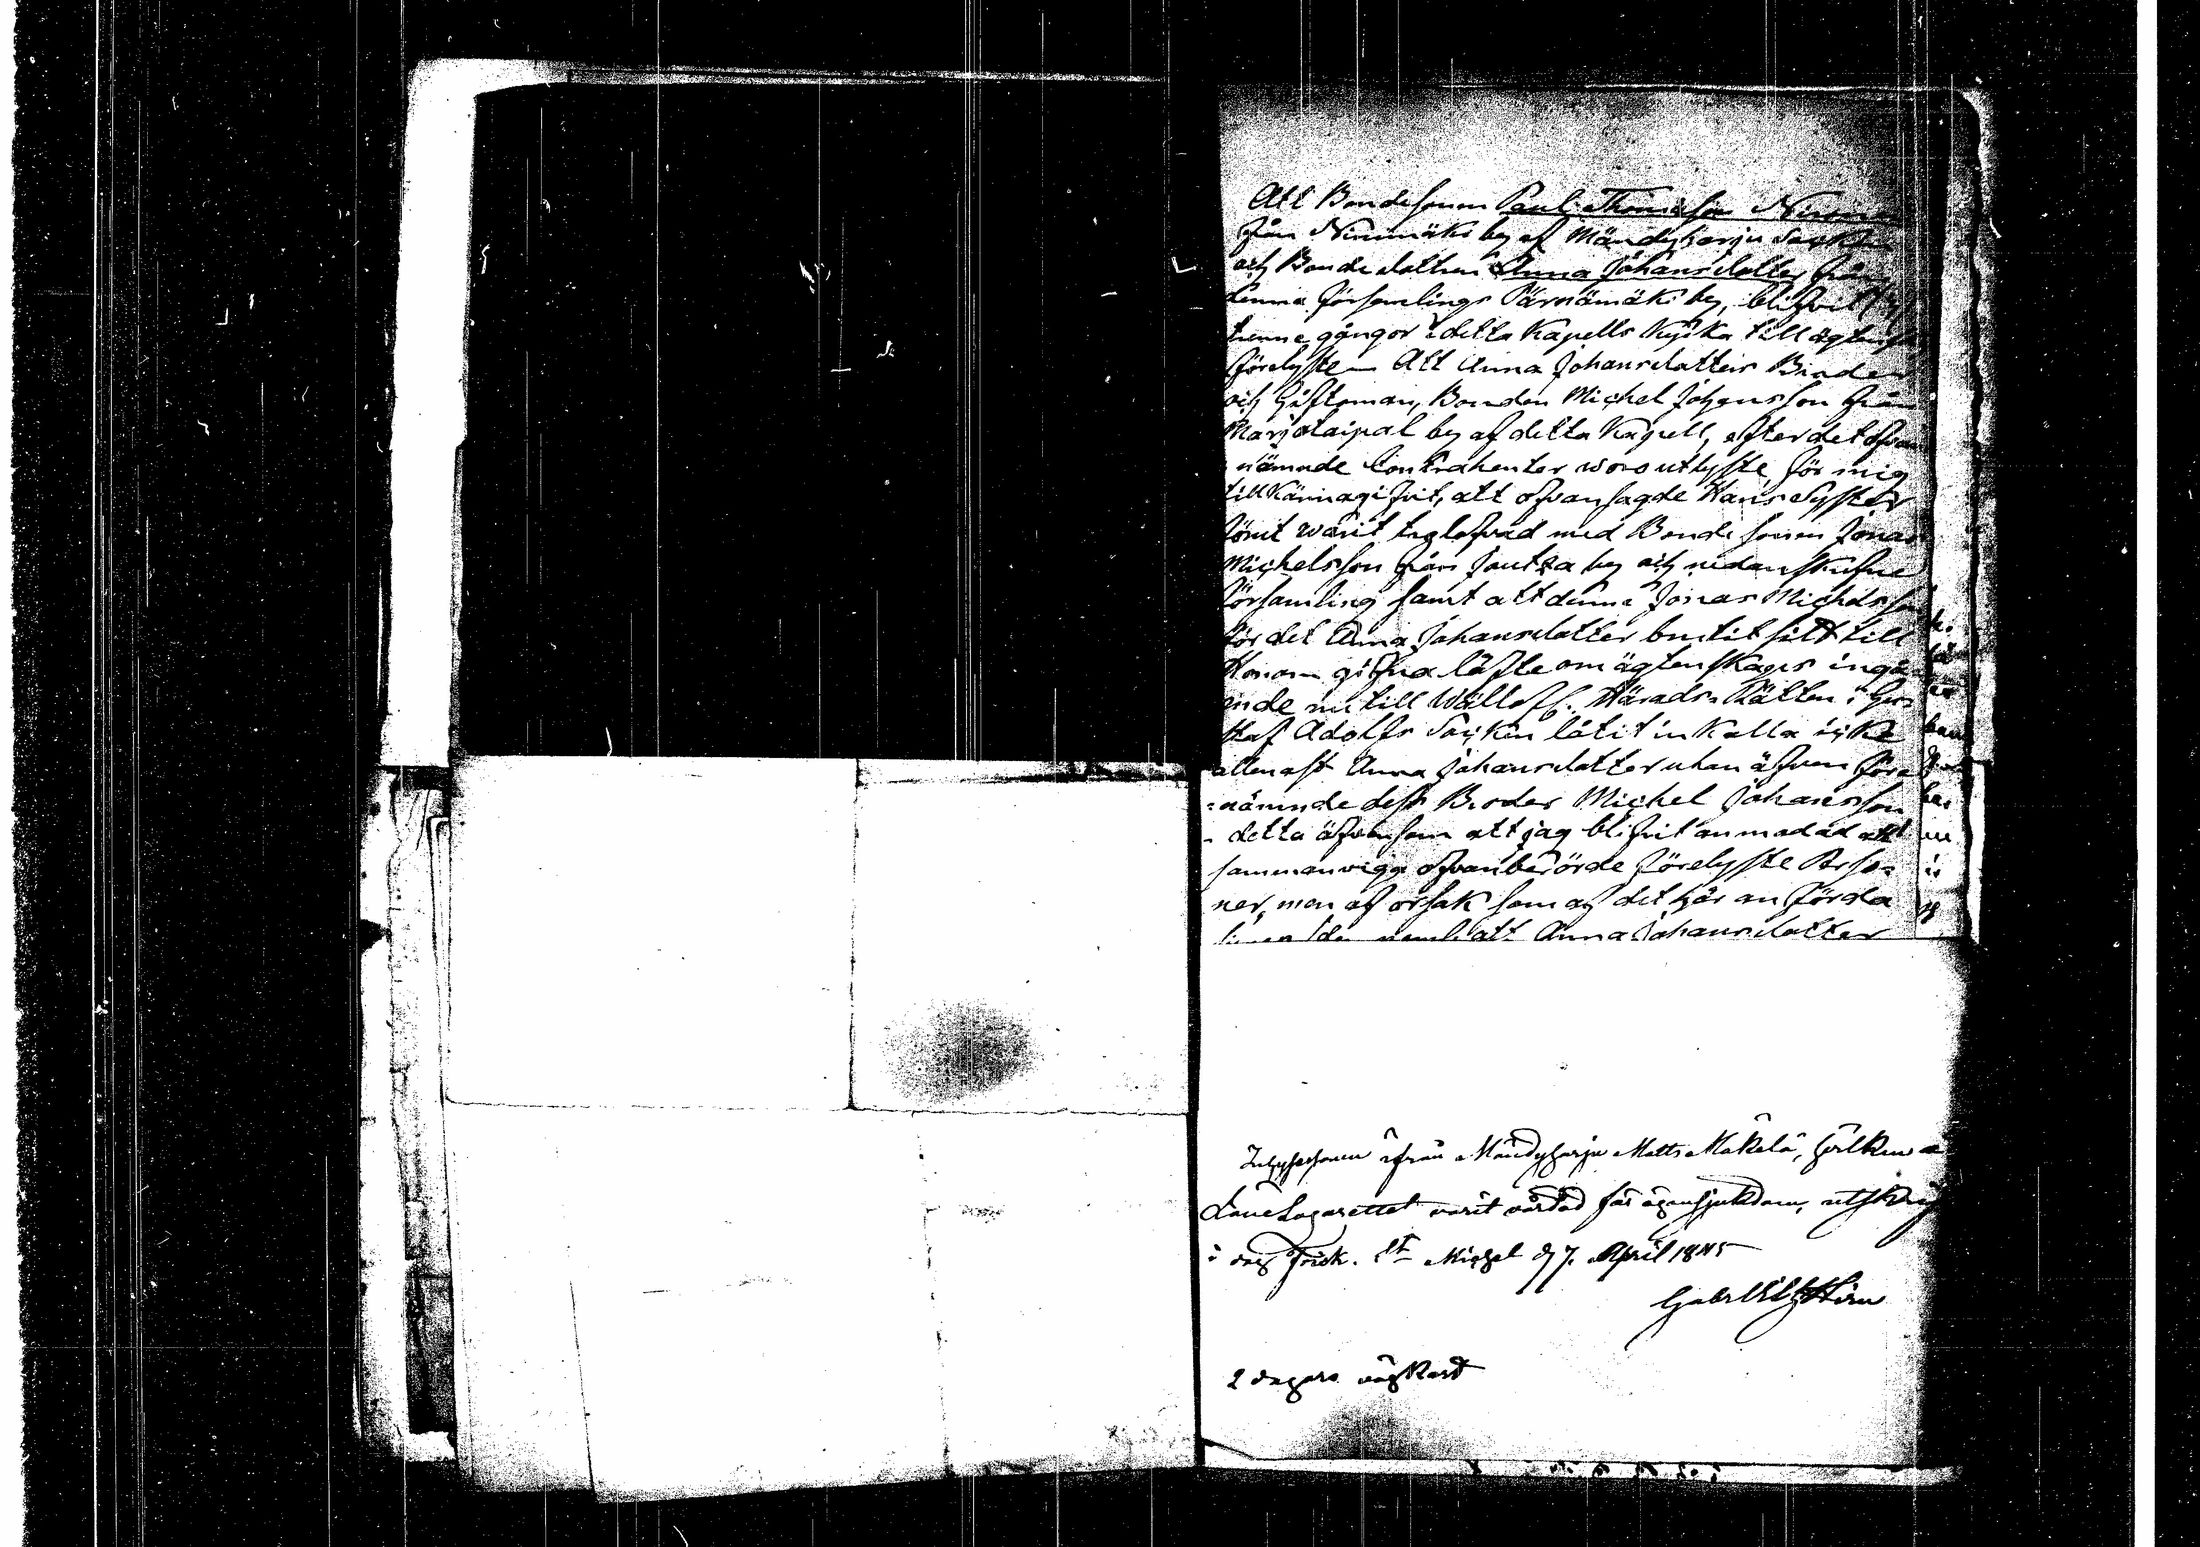 Att Bondesonen Paul Thomasson Niemi
från Niinimäki by af Mändyharju Sockn
och Bondedottren Anna Johansdotter från
denna församlings Pärnämäki by, blifvit
trenne gångor i detta Kapells Kyrka till ägtenskap
förelyste — Att Anna Johansdotters Broder
och Giftoman, Bonden Michel Johansson från
Marjotaipal by af detta Kapell, efter det ofvan
nämnde Contrahenter woro utlyste, för mig
tillkännagifvit, att ofvansagde Hans Syster
förut warit trglofvad med Bondesonen Jonas
Michelsson från Joutza by och nedanskrifne
församling samt att denne Jonas Michelsson
för det Anna Johansdotter brutit sitt till
Honom gifna löfte om ägtenskaps ingå
ende nu till Wällofl. Härads-Rätten i Gu-
staf Adolfs Sockn låtit inkalla icke
allenast Anna Johansdotter utan äfven före
-nämnde dess Broder Michel Johansson
- detta äfvensom att jag blifvit anmodad att
sammanviga ofvanberörde förelyste Perso-
ner, men af orsak som af det här anförda
att Anna Johansdotter
Inhysessonen ifrån Mändyharju Matts Mäkelä, hvilken å
Lane Lazarettet varit vårdad för ögonsjukdom, utskrifs
i dag frisk. St Michel d 7. April 1845
2 dagars vägkost